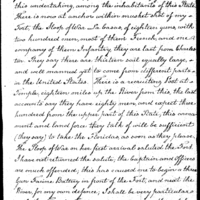 this undertaking, among the inhabitants of this State.
There is now at anchor within musket shot of my
Fort, the Sloop of War La Casca, of eighteen guns, with
two hundred men, most of them French, and one
company of them Infantry they are last from Charles-
ton. They say there are thirteen sail equally large, &
and well manned yet to come from different parts
in the United States. There is a recruiting Post at
Temple, eighteen miles up the River from this, the last
accounts say they have eighty men, and expect three
hundred from the upper part of this State, this arma-
ment and land force they talk of will be sufficient
(they say) to take the Floridas as soon as they please.
The Sloop of War on her first arrival saluted the Fort.
I have not returned the salute, the Captain and officers
are much offended; this has caused me to begin a three
Gun Facine Battery in front of the Fort, and next the
River, for my own defence, I shall be very particular